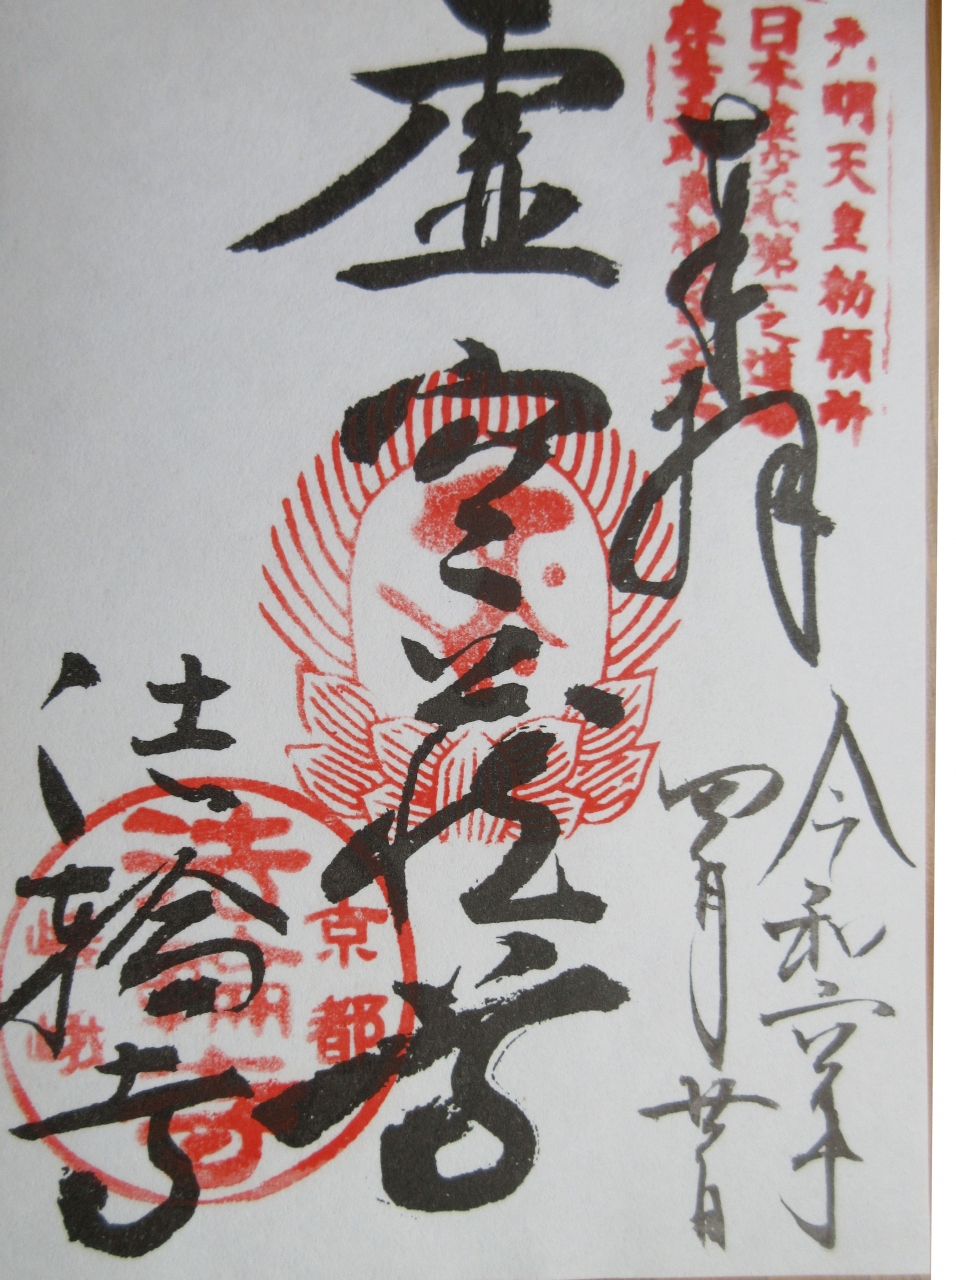 明天皇勅願所
日本
第一之道
奉拝
令和六年
四月廿日
虚空蔵尊
法輪寺
京都
嵯峨
法輪寺